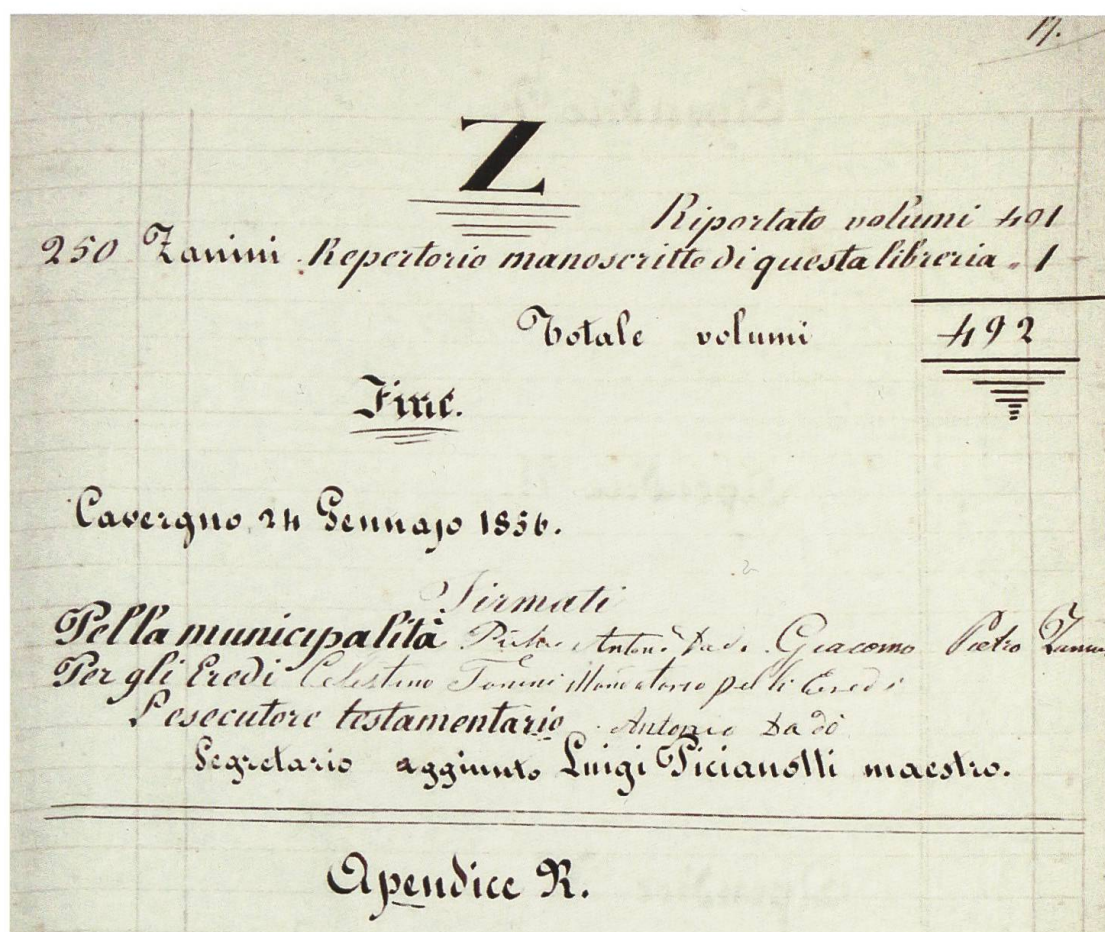 17.
Z
Riportato volumi 491
250 Zanini Repertorio manoscritto di questa libreria " 1
Totale volumi 492
Fine.
Cavergno 24 Gennajo 1856.
Firmati
Pella municipalità Antonio Dadò Giacomo Pietro
Per gli Eredi Celestino Tonini Mandatario pelli Eredi
L'esecutore testamentario Antonio Dadò
Segretario aggiunto Luigi Picianotti maestro.
Apendice R.